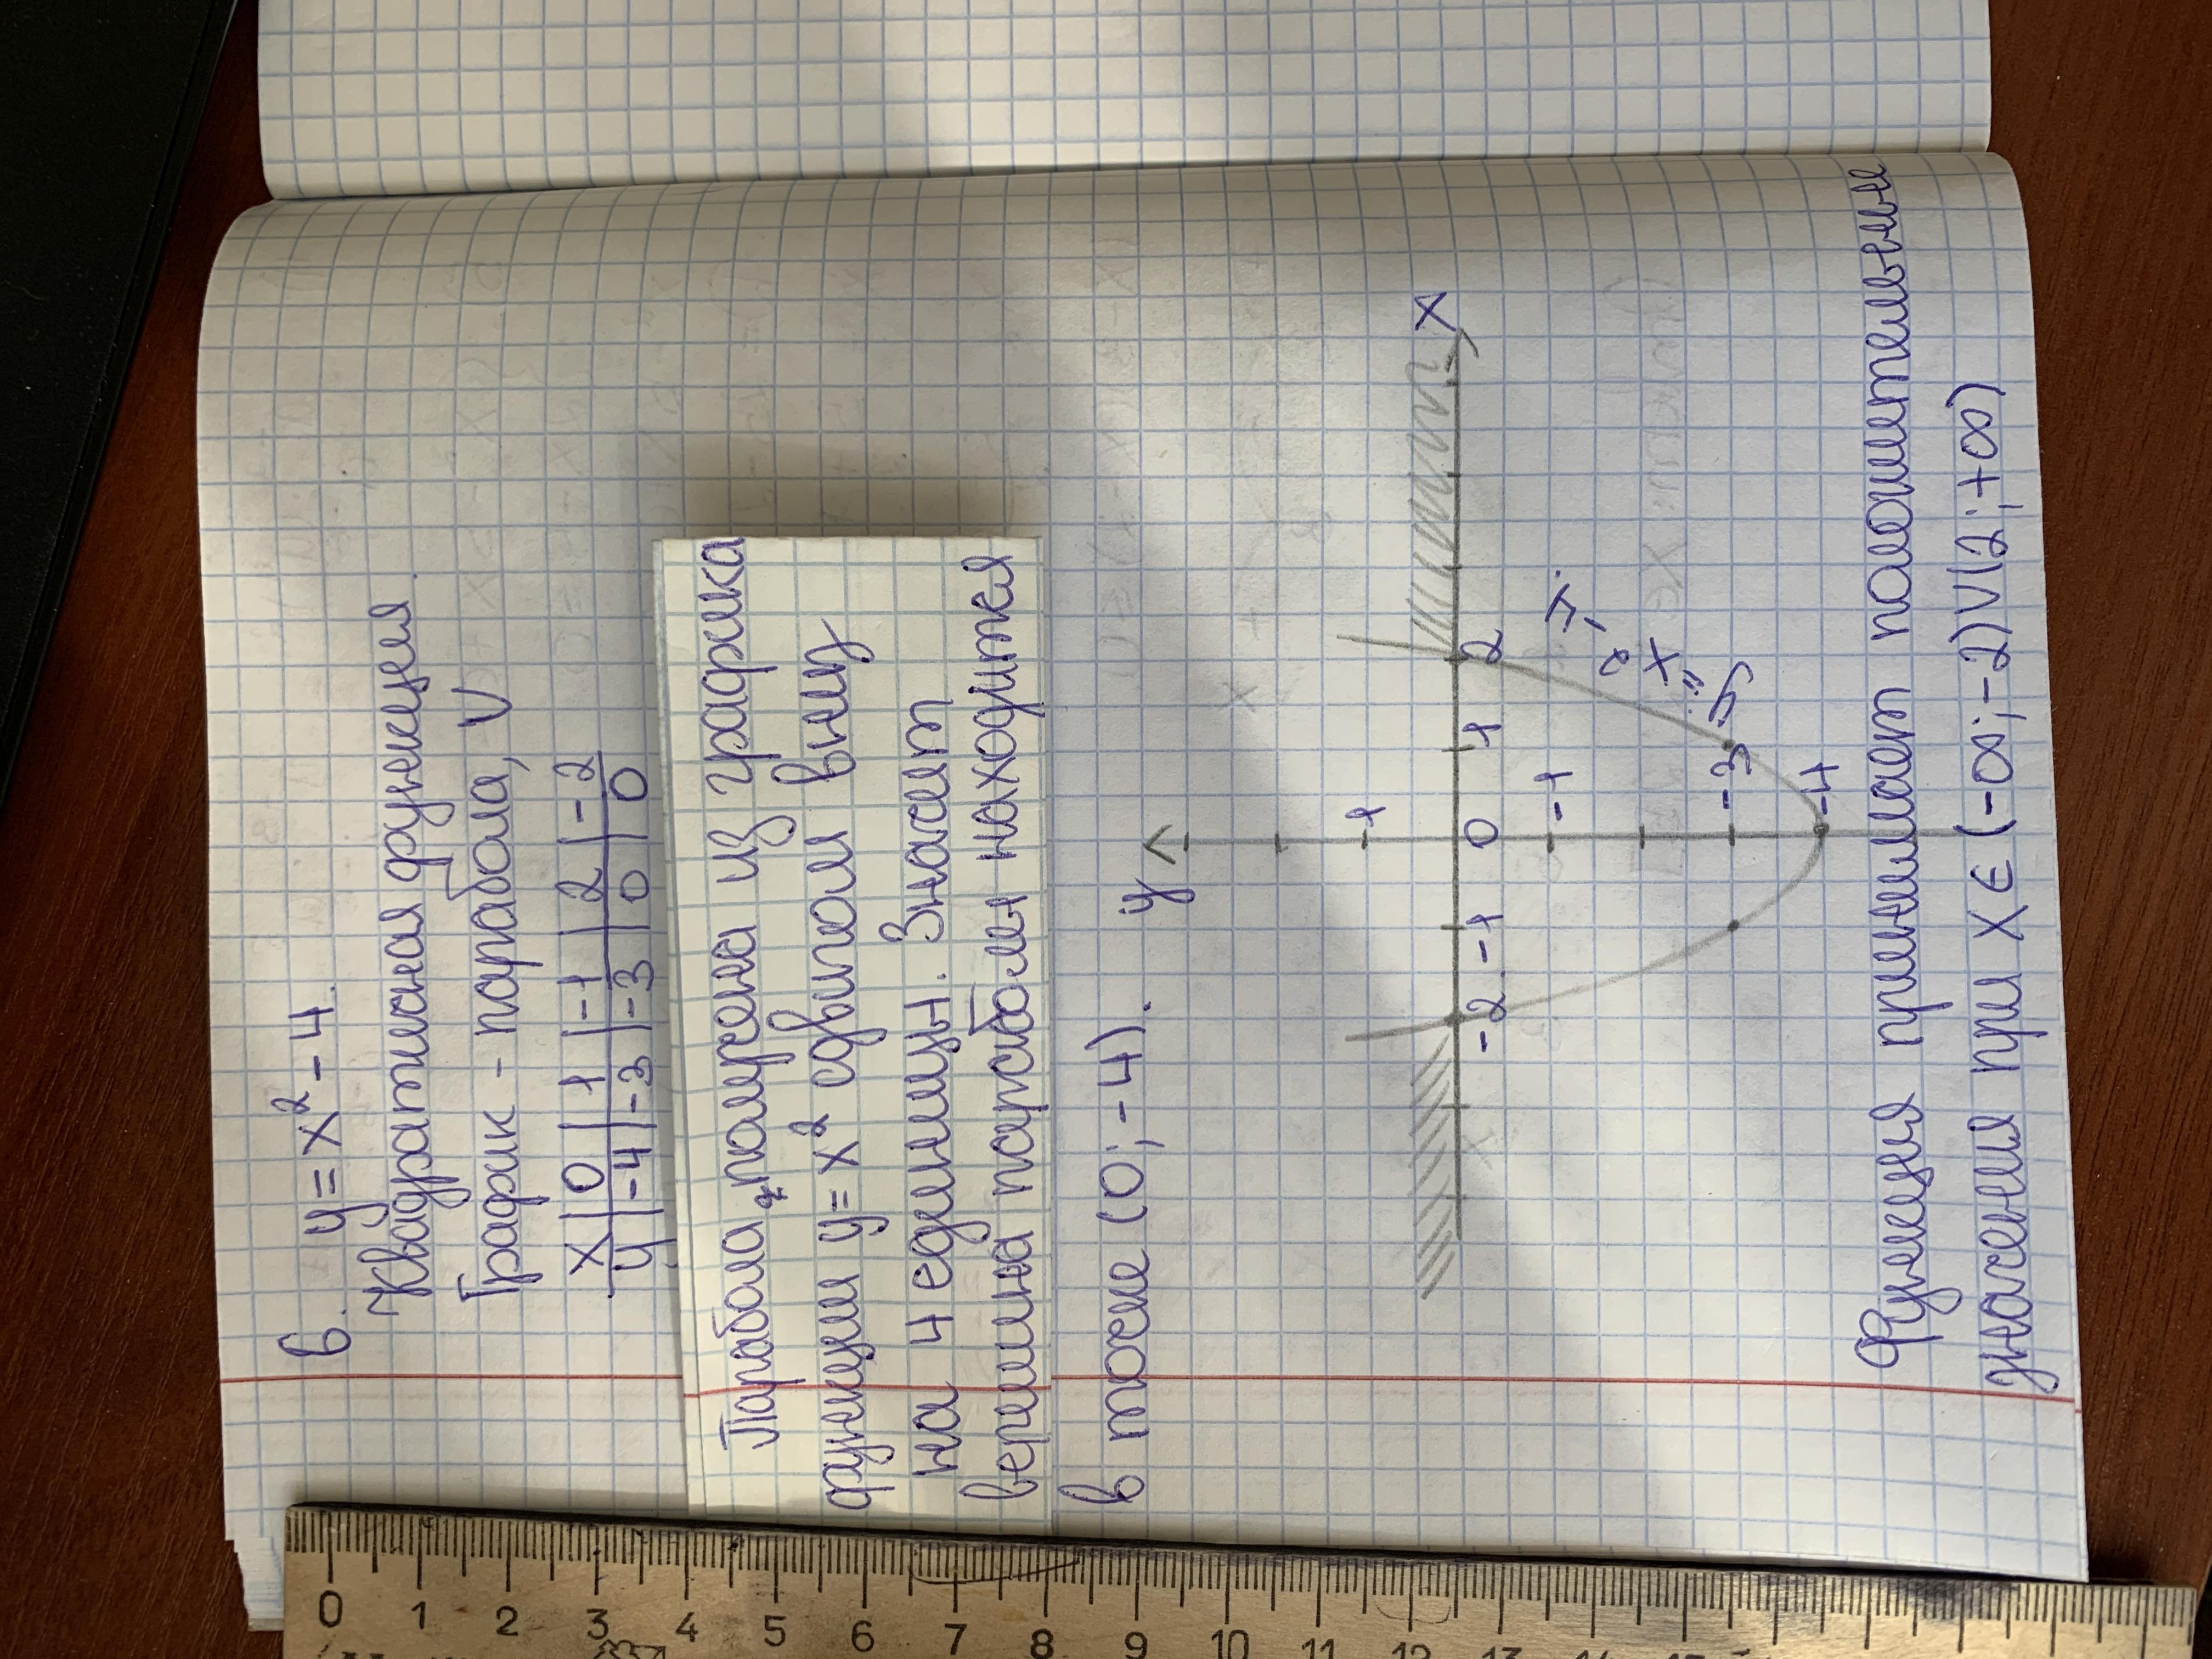 6. y = x² - 4.
Квадратичная функция
График - парабола, V
x | 0 | 1 | -1 | 2 | -2
y | -4 | -3 | -3 | 0 | 0
Парабола получена из графика
функции y = x² сдвигом вниз
на 4 единицы. Значит
вершина параболы находится
в точке (0; -4).
y
x
1
-2 -1 0 1 2
-1
-3
-4
y = x² - 4
Функция принимает положительные
значения при x ∈ (-∞; -2) ∪ (2; +∞)
0 1 2 3 4 5 6 7 8 9 10 11 12 13 14 15